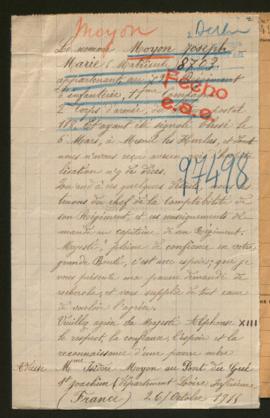 Moyon
2 Derbu
Le nommé Moyon Joseph
Marie, Matricule 8763
appartenant au 7 Régiment
d'infanterie, 11ème Compagnie
2 Corps d'armée, postal
181 Etant été signalé blessé le
6 Mars, à Mesnil les Hurlus, et dont
nous n'avons reçu aucune
Fecho
e.a.e.
97498
tenons du chef de la Comptabilité de
son Régiment, et renseignements de
mandé au capitaine de son Régiment.
Majesté! pleine de confiance en votre
grande Bonté, c'est avec espoir, que je
vous présente ma pauvre demande de
recherches, et vous supplie de tout cœur
de vouloir l'agréer.
Veuillez agréer Sa Majesté Alphonse XIII
le respect, la confiance l'espoir et la
reconnaissance d'une pauvre mère
Adresse Mme Moyon au Pont du Gué
St Joachim (Département Loire Inférieure)
(France) 26 Octobre 1915